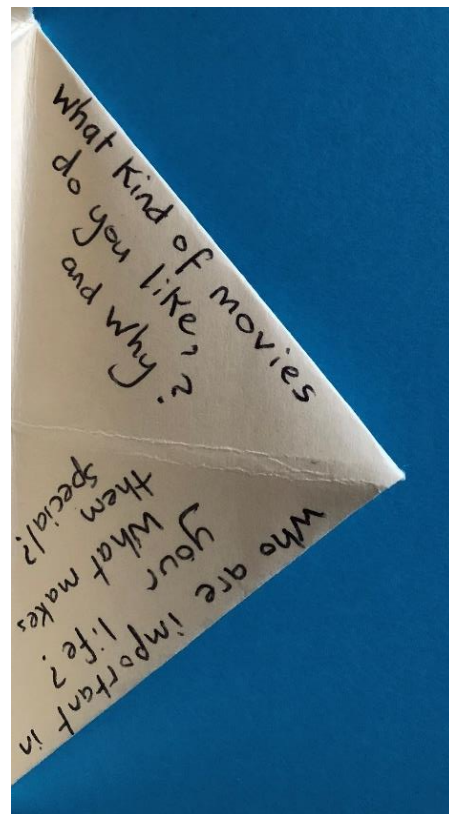 what kind of movies
do you like,
and why?
Who are important in
your life?
What makes
them
special?